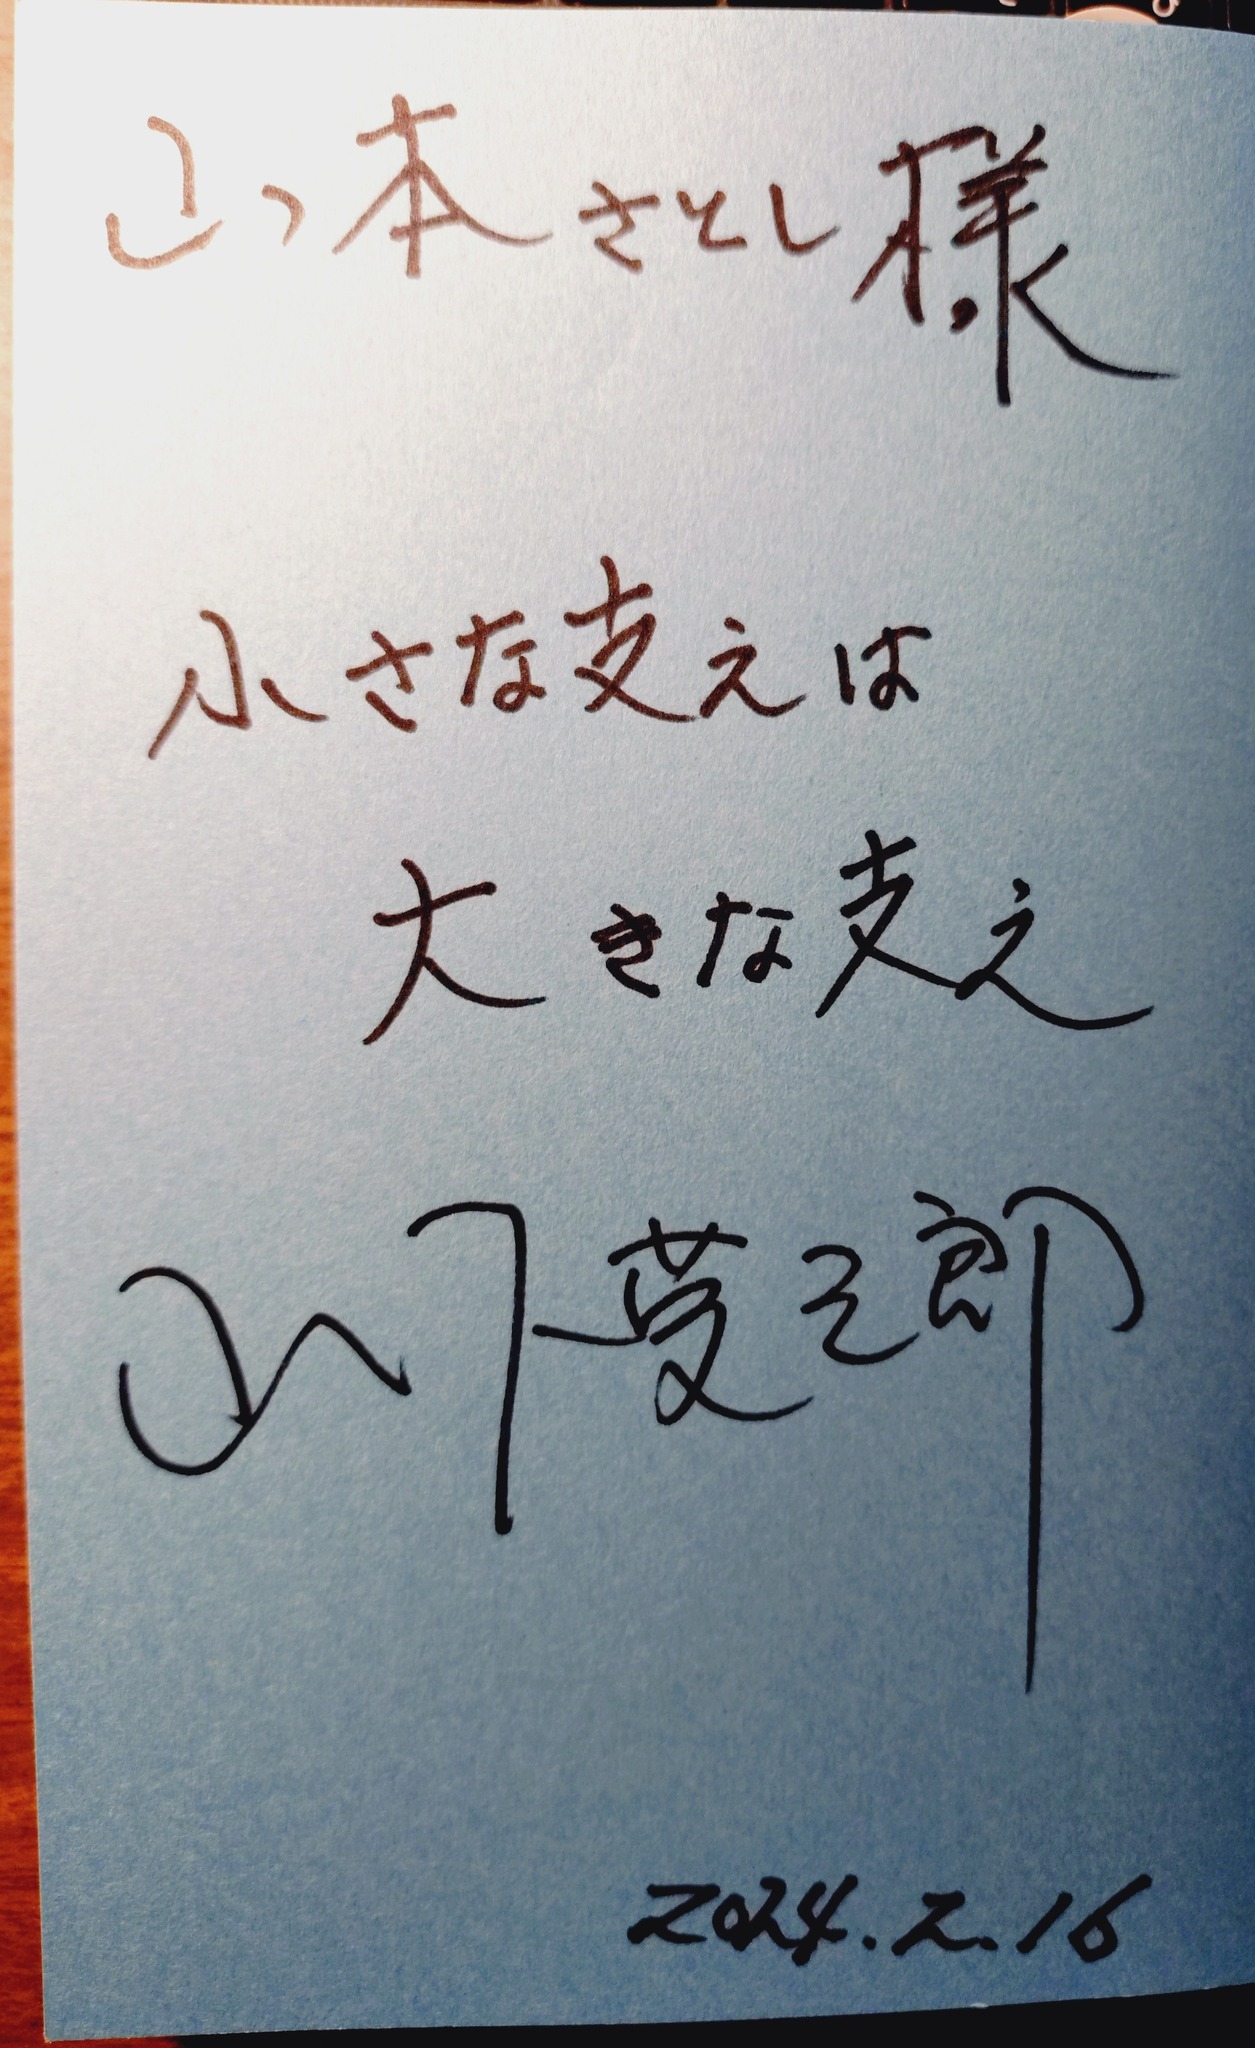 山本さとし様
小さな支えは
大きな支え
山下
2024.2.16